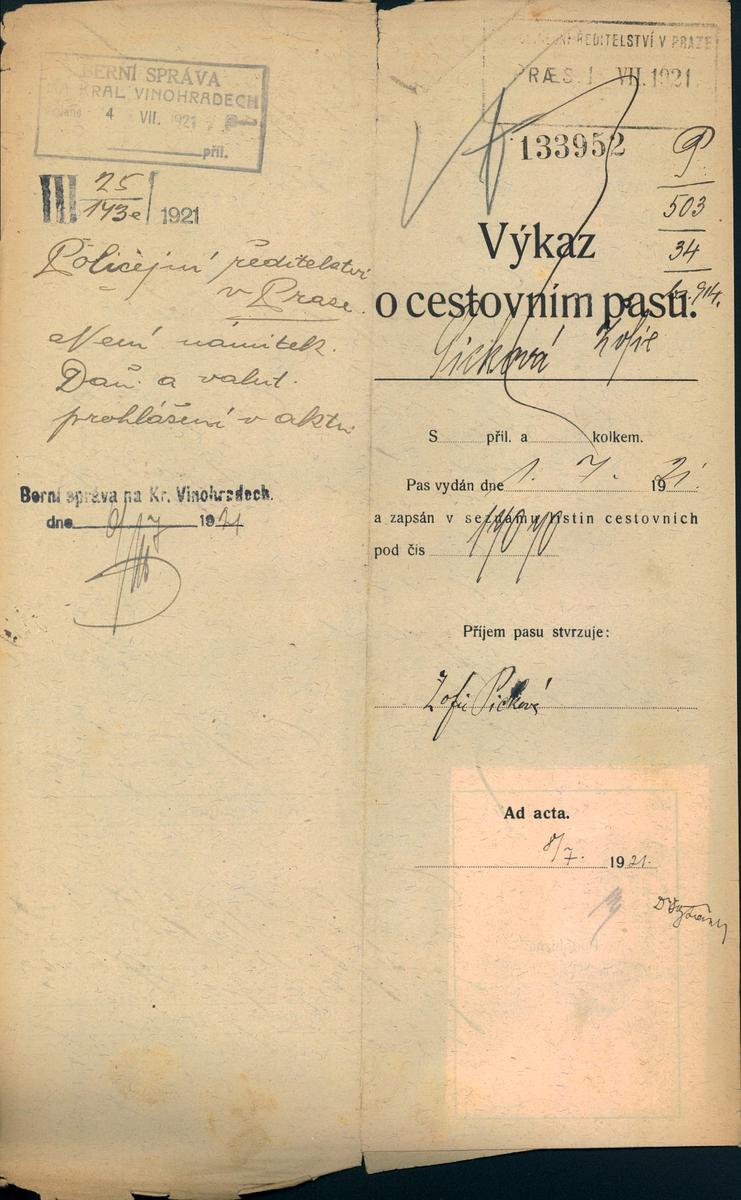 BERNÍ SPRÁVA
NA KRÁL. VINOHRADECH
4 VII. 1921
příl.
III 25/143e 1921
Policejní ředitelství
v Praze.
Není námitek.
Daň. a valut.
prohlášení v aktu
Berní správa na Kr. Vinohradech.
dne 1921
ŘEDITELSTVÍ V PRAZE
PRÆS. 1 VII. 1921
133952
P
503
34
914.
Výkaz
o cestovním pasu.
Picková Zofie
S příl. a kolkem.
Pas vydán dne 1. 7. 1921
a zapsán v seznamu listin cestovních
pod čís
Příjem pasu stvrzuje:
Zofie Picková
Ad acta.
8/7. 1921.